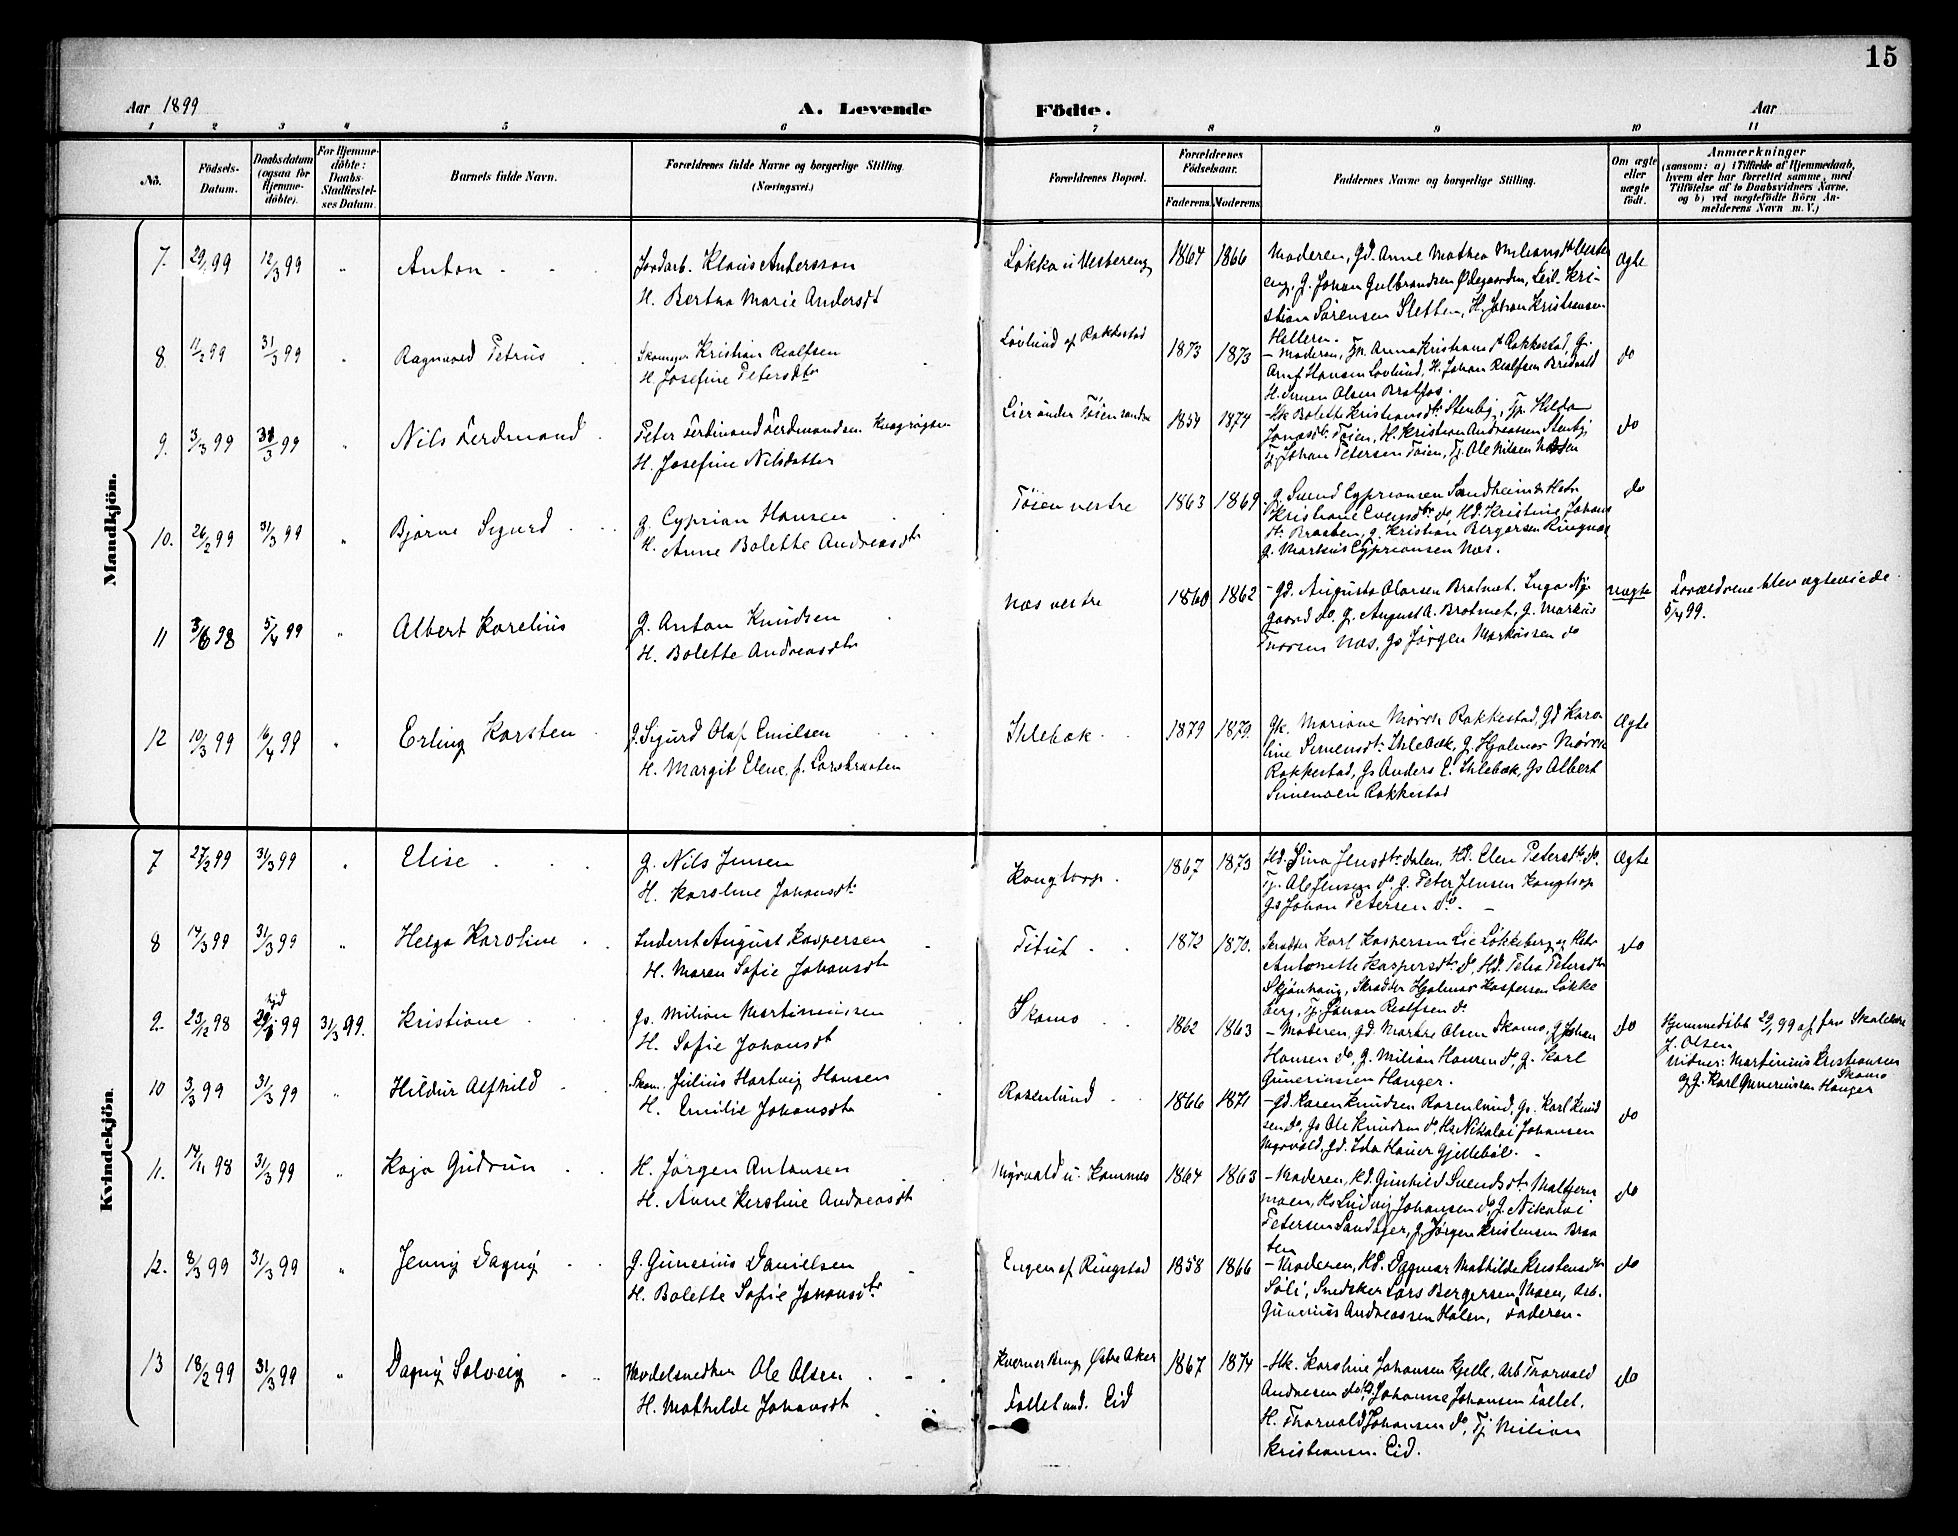 15
Aar 1899
A. Levende
Födte.
Aar
1 2 3 4 5 6 7 8 9 10 11
No.
Födsels-
Datum.
Daabsdatum
(ogsaa for
Hjemme-
döbte).
For Hjemme-
döbte:
Daabs-
Stadfæstel-
ses Datum.
Barnets fulde Navn.
Forældrenes fulde Navne og borgerlige Stilling.
(Næringsvei.)
Forældrenes Bopæl.
Forældrenes
Födselsaar.
Faderens. Moderens.
Faddernes Navne og borgerlige Stilling.
Om ægte
eller
uægte
födt.
Anmærkninger
(saasom: a) i Tilfælde af Hjemmedaab,
hvem der har forrettet samme, med
Tilföielse af to Daabsvidners Navne,
og b) ved uægtefödte Börn An-
melderens Navn m. V.)
Mandkjön.
7. 29/1 99 12/3 99 " Anton
Jordarb. Klaus Andersson
H. Bertha Marie Andersdt
Løkka u Vestereng 1867 1866
Moderen, Gd. Anne Mathea
eng, G. Johan Gulbrandsen Ødegaarden, Leil. Kri-
stian Sørensen Sletten, H. Johan Kristiansen
Helleren.
Ægte
8. 11/2 99 31/3 99 " Ragnvald Petrus
Skomager Kristian Realfsen
H. Josefine Petersdtr
Løvlund af Rakkestad 1873 1873
- Moderen, Tp. Anna Kristiansdt Rakkestad, G.
Arnt Hansen Løvlund, H. Johan Realfsen Bredvold
H. Simen Olsen Bratfos.
do
9. 3/3 99 31/3 99 " Nils Ferdinand
Peter Ferdinand Ferdinandsen
H. Josefine Nilsdatter
Lier under Töien søndre 1854 1874
- Hk. Bolette Kristiansdt. Stenby, Tp. Hilda
Jonasdt. Töien, H. Kristian Andreassen Stenby,
Tj. Johan Petersen Töien, Tj. Ole Nilsen
do
10. 26/2 99 31/3 99 " Bjarne Sigurd
G. Cyprian Hansen
H. Anne Bolette Andreasdtr
Töien vestre 1863 1869.
G. Svend Cypriansen Sandheim & Hstr
Kristiane Evensdtr do, Hd. Kristine Johans
dt. Braaten, G. Kristian Bergersen Ringnæs,
G. Markus Cypriansen Næs.
do
11 3/6 98 5/4 99 " Albert Karelius
G. Anton Knudsen
H. Bolette Andreasdtr
Næs vestre 1860 1862
- Gd. Augusta Olavsen Bratnet. Inga Ny
gaard do, G. August A. Bratnet, G. Markus
Iversen Næs, Gs Jörgen Markussen do
uægte
Forældrene blev ægteviede
5/4 99.
12 10/3 99 16/4 99 " Erling Karsten
G. Sigurd Olaf Emilsen
H. Margit Elene, f. Larsbraaten
Ihlebæk 1879 1879.
Gk. Mariane Mørck Rakkestad, Gd Karo-
line Simensdt. Ihlebæk, G. Hjalmar Mørck
Rakkestad, Gs Anders E. Ihlebæk, Gs Albert
Simensen Rakkestad
Ægte
Kvindekjön.
7 27/2 99 31/3 99 " Elise
G. Nils Jensen
H. Karoline Johansdt.
Kongtorp. 1867 1873
Hd. Lina Jensdtr Dalen, Hd. Elen Petersdtr do.
Tj. Ole Jensen do, G. Peter Jensen Kongtorp
Gs Johan Petersen do. -
Ægte
8 14/3 99 31/3 99 " Helga Karoline
Inderst August Kaspersen
H. Maren Sofie Johansdtr
Titut 1872 1870.
Skrædder Karl Kaspersen Lie Løkkeberg og Hstr
Antonette Kaspersdt. do, Hd. Petra Petersdtr
Skjønhaug, Skrædder Hjalmar Kaspersen Løkke
berg, Tj. Johan Realfsen do.
do
9. 23/12 98 hjd 29/1 99 31/3 99. Kristiane
Gs. Milian Martiniussen
H. Sofie Johansdt
Skamo 1862 1863
- Moderen, Gd Marthe Olsen Skamo, G Johan
Hansen do, G. Milian Hansen do, G. Karl
Gunerinsien Hanger.
do
Hjemmedöbt 29/1 99 af fru Skolelære
J. Olsen
Vidner: Martinius Kristiansen
Skamo
og G. Karl Gunerinsen Hanger
10 3/3 99 31/3 99 " Hildur Alfhild
Skom. Julius Hartvig Hansen
H. Emilie Johansdtr
Rosenlund 1866 1871
- Gd. Karen Knudsen Rosenlund, Gs. Karl Knud
sen do, Gs Ole Knudsen do, Hs Nikolai Johansen
Myrvold, Gd. Ida Hauer Gjellebøl. -
do
11. 14/11 98 31/3 99 " Kaja Gudrun
H. Jörgen Antonsen
H. Anne Kerstine Andreasdt
Myrvald u. Kamnæs 1864 1863
- Moderen, Hd. Gunhild Svendsdtr Maltjern
moen, Hs Ludvig Johansen do, G. Nikolai
Petersen Sandager, G. Jörgen Kristensen Braa
ten
do
12. 8/3 99 31/3 99 " Jenny Dagny
G. Gunerius Danielsen
H. Bolette Sofie Johansdtr
Engen af Ringstad 1858 1866
- Moderen, Hd. Dagmar Mathilde Kristensdtr
Sali, Snedker Lars Bergersen Moen, Arb.
Gunerius Andreassen Holen, Faderen.
do
13 18/2 99 31/3 99 " Dagny Solveig
Modelsnedker Ole Olsen
H. Mathilde Johansdt
Kverner Brug Østre Aker
Folletund. Eid
1867 1874
- Hk. Karoline Johansen Gjelle, Arb Thorvald
Andresen do, Johanne Johansen Follet.
H. Thorvald Johansen do, Tj Milian
Kristiansen. Eid.
do